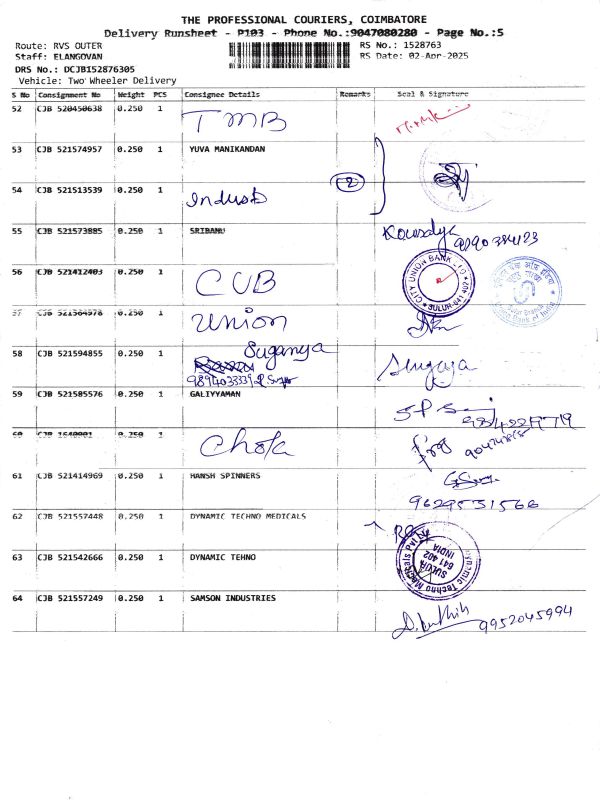 THE PROFESSIONAL COURIERS, COIMBATORE
Delivery Runsheet - P103 - Phone No.:9047080280 - Page No.:5
Route: RVS OUTER
RS No.: 1528763
Staff: ELANGOVAN
RS Date: 02-Apr-2025
DRS No.: DCJB152876305
Vehicle: Two Wheeler Delivery
S No Consignment No Weight PCS Consignee Details Remarks Seal & Signature
52 CJB 520450638 0.250 1 TMB
53 CJB 521574957 0.250 1 YUVA MANIKANDAN
2
54 CJB 521513539 0.250 1
55 CJB 521573885 0.250 1 SRIBANU Kowsalya
56 CJB 521412403 0.250 1 CUB
CITY UNION BANK LTD SULUR-641 402
57 0.250 1 union
58 CJB 521594855 0.250 1 Suganya
59 CJB 521585576 0.250 1 GALIYYAMAN
60 0.250 1 Chola
61 CJB 521414969 0.250 1 HANSH SPINNERS
9629531566
62 CJB 521557448 0.250 1 DYNAMIC TECHNO MEDICALS
Dynamic Techno Medicals Pvt Ltd
SULUR
641 402
INDIA
63 CJB 521542666 0.250 1 DYNAMIC TEHNO
64 CJB 521557249 0.250 1 SAMSON INDUSTRIES
9952045994